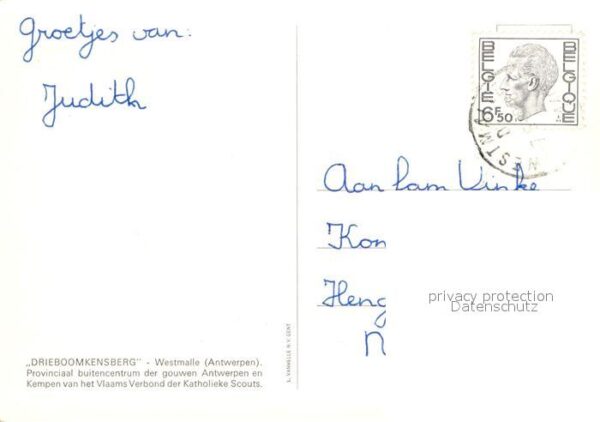 Groetjes van:
Judith
BELGIE
BELGIQUE
6F50
WESTM
Aan fam Vinke
Kon
Heng
N
privacy protection
Datenschutz
„DRIEBOOMKENSBERG" - Westmalle (Antwerpen).
Provinciaal buitencentrum der gouwen Antwerpen en
Kempen van het Vlaams Verbond der Katholieke Scouts.
L. VANMELLE N.V. GENT